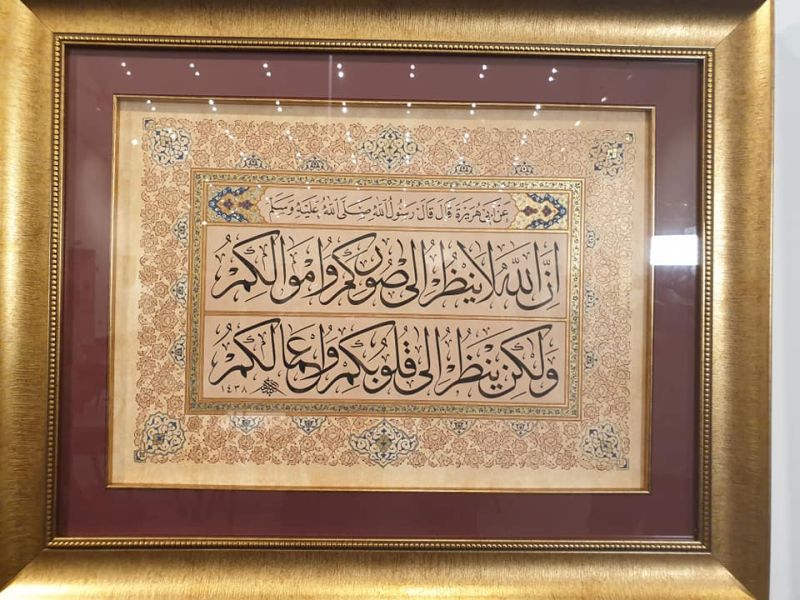 عَنْ اَبِي هُرَيْرَةَ قَالَ قَالَ رَسُولُ اللهِ صَلَّى اللهُ عَلَيْهِ وَسَلَّمَ
اِنَّ اللّٰهَ لَا يَنْظُرُ اِلٰى صُوَرِكُمْ وَاَمْوَالِكُمْ
وَلٰكِنْ يَنْظُرُ اِلٰى قُلُوبِكُمْ وَاَعْمَالِكُمْ
١٤٣٨